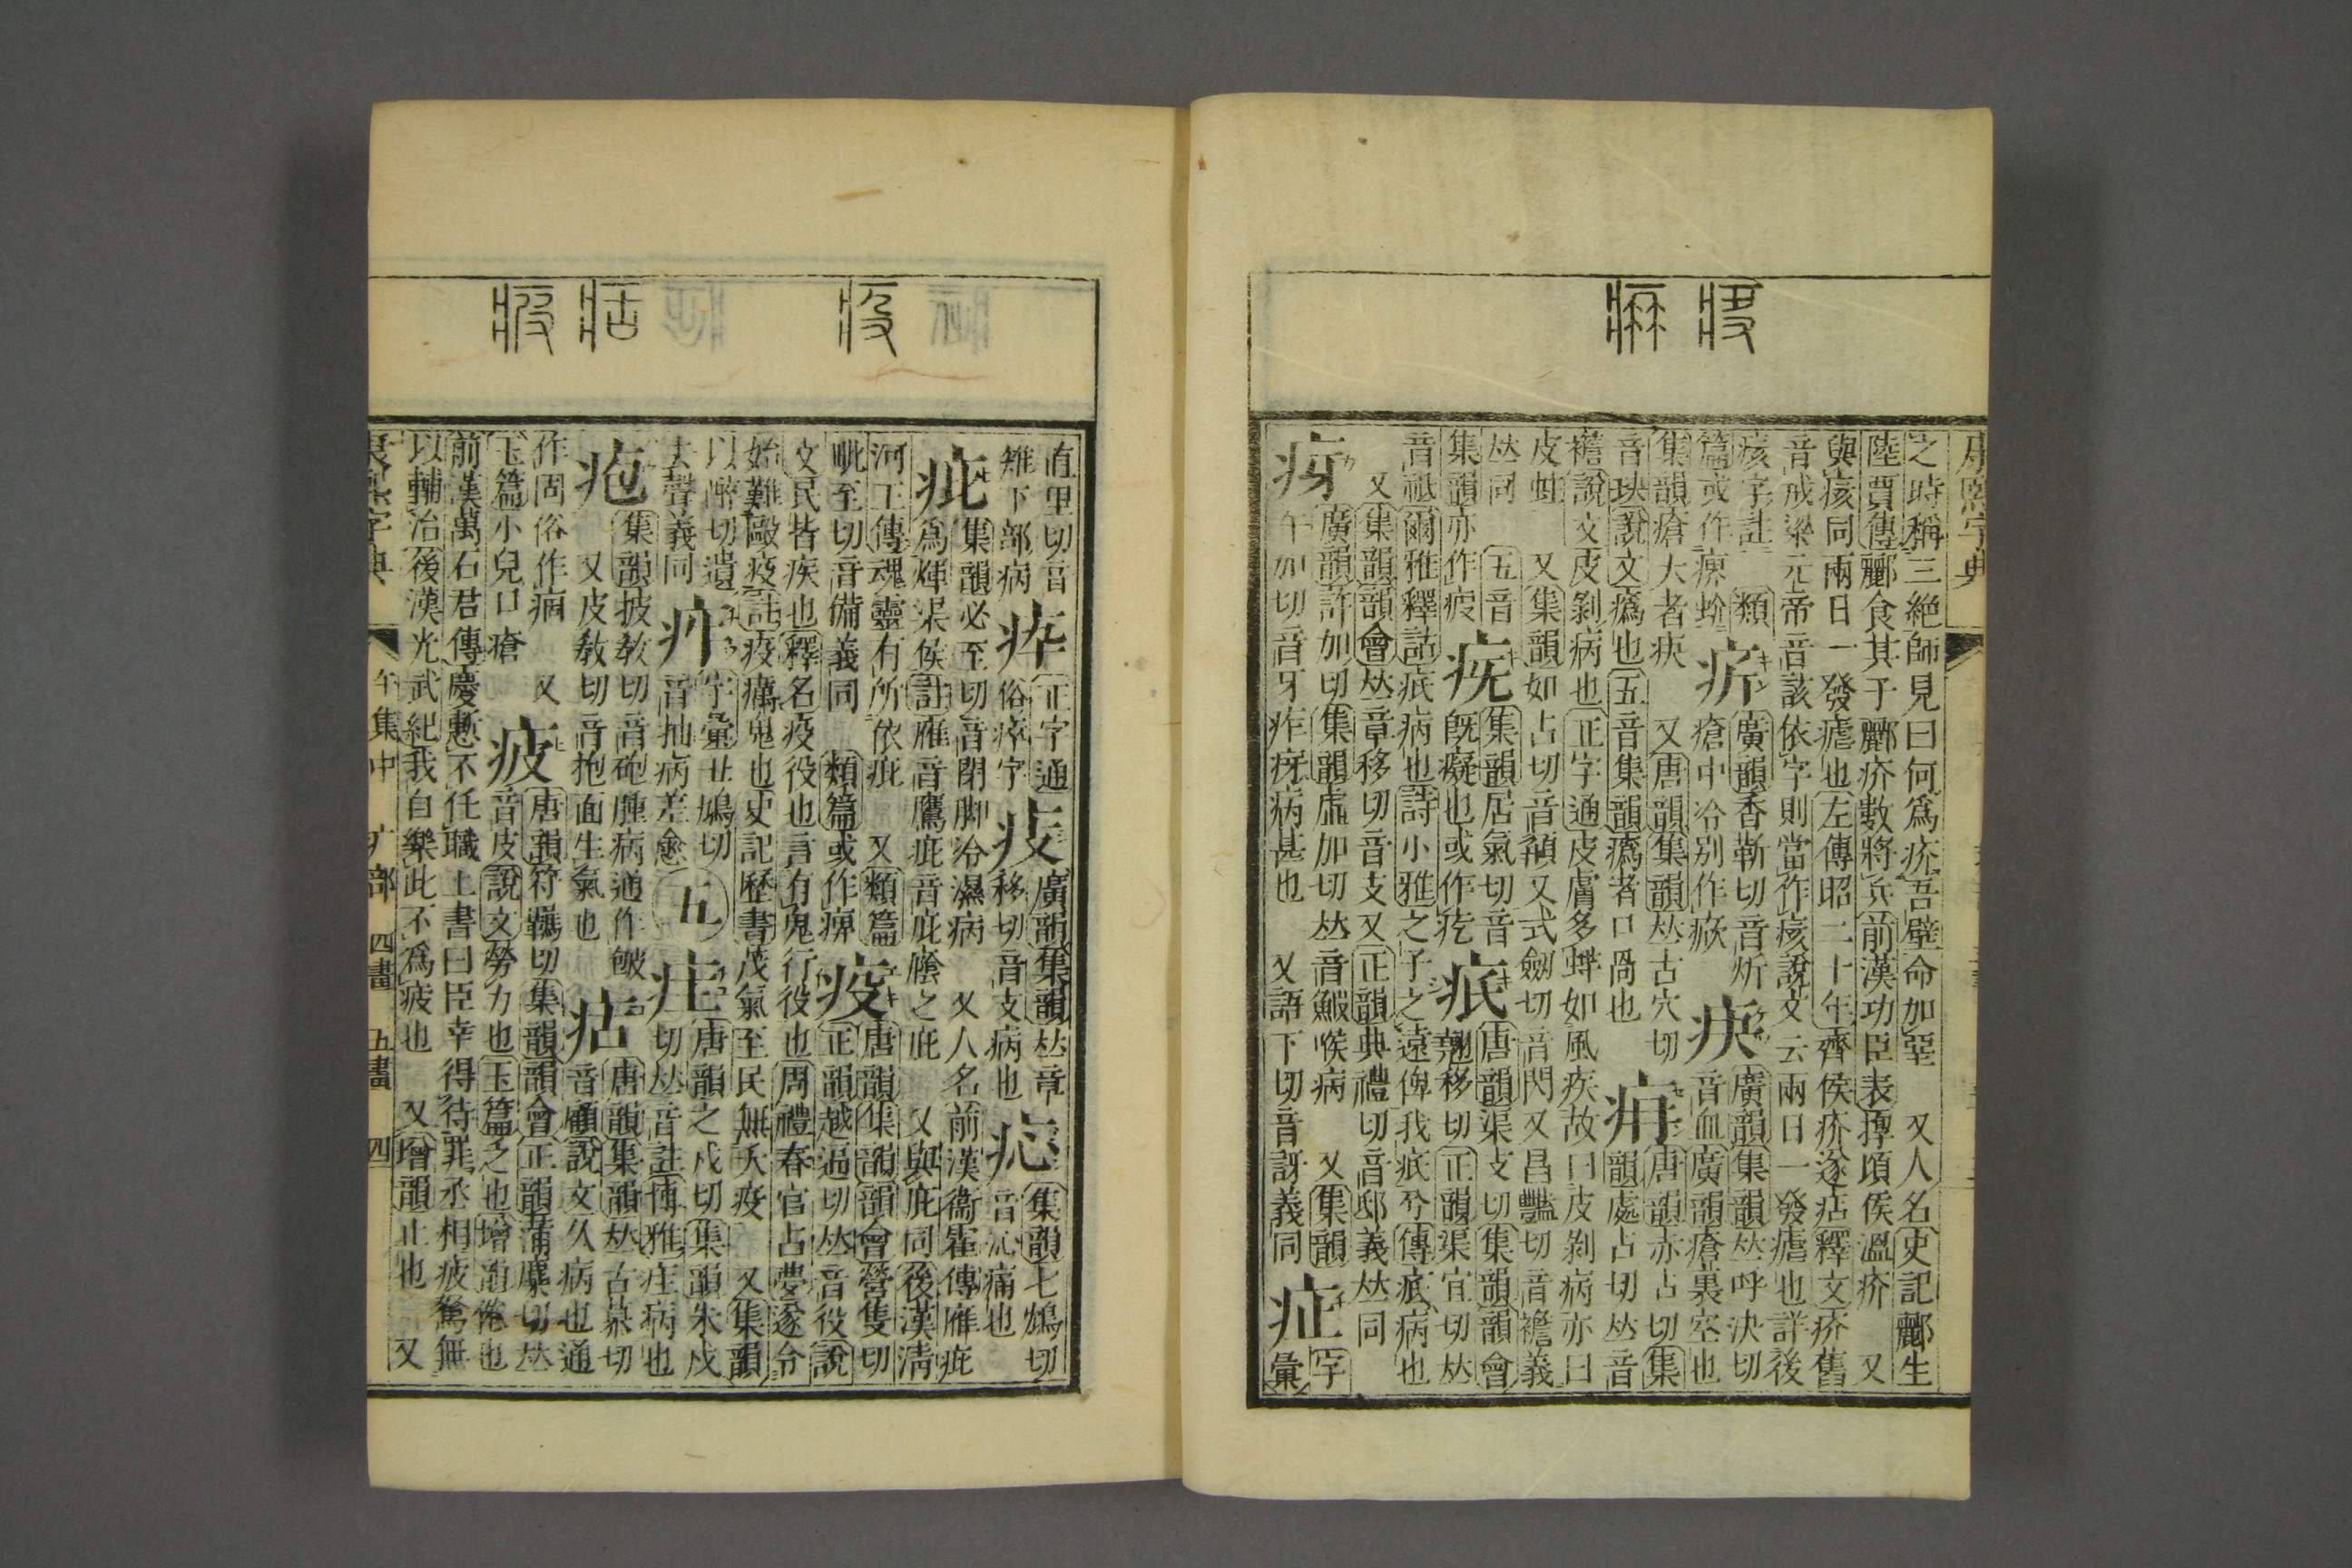 康熙字典
之時稱三絕師見曰何爲疥吾壁命加堊 又人名史記酈生
陸賈傳酈食其子酈疥數將兵前漢功臣表頃侯溫疥 又
與痎同兩日一發瘧也左傳昭二十年齊侯疥遂痁釋文疥舊
音戒梁元帝音該依字則當作痎說文云兩日一發瘧也詳後
痎字註 類
篇或作
廣韻香靳切音焮
瘡中冷別作
疦
廣韻集韻𠀤呼決切
音血廣韻瘡裏空也
集韻瘡大者疦 又唐韻集韻𠀤古穴切
音玦說文瘑也五音集韻瘑者口咼也
㾆
唐韻赤占切集
韻處占切𠀤音
襜說文皮剝病也正字通皮膚多蜱如風疾故曰皮剝病亦曰
皮蛀 又集韻如占切音又式劒切音閃又昌豔切音襜義
𠀤同 五音
集韻亦作
集韻居氣切音
旣癡也或作疙
疧
唐韻渠支切集韻韻會
翹移切正韻渠宜切𠀤
音祗爾雅釋詁疧病也詩小雅之子之遠俾我疧兮傳疧病也
又集韻韻會𠀤章移切音支又正韻典禮切音邸義𠀤同
疨
廣韻許加切集韻虛加切𠀤音喉病 又集韻
牛加切音牙疨病甚也 又語下切音訝義同
症
字
彙
直里切音
雉下部病
正字通
俗瘁字
疲
廣韻集韻𠀤章
移切音支病也
集韻七鴆切
音沁痛也
疪
集韻必至切音閉脚冷濕病 又人名前漢衞霍傳雁疪
爲煇渠侯註雁音鷹疪音庇蔭之庇 又與庇同後漢淸
河王傳魂靈有所依疪 又類篇
毗至切音備義同 類篇或作痹
疫
唐韻集韻韻會營隻切
正韻越逼切𠀤音役說
文民皆疾也釋名疫役也言有鬼行役也周禮春官占夢遂令
始難歐疫註疫癘鬼也史記歷書茂氣至民無夭疫 又集韻
以醉切遺
去聲義同
字彙丑鳩切
音抽病差愈
五
疰
唐韻之戍切集韻朱戍
切𠀤音註博雅疰病也
疱
集韻披敎切音砲腫病通作皰
又皮敎切音抱面生氣也
㽽
唐韻集韻𠀤古慕切
音顧說文久病也通
作固俗作痼 又
玉篇小兒口瘡
疲
唐韻符羈切集韻韻會正韻蒲麋切𠀤
音皮說文勞力也玉篇乏也增韻倦也
前漢萬石君傳慶慙不任職上書曰臣幸得待罪丞相疲駑無
以輔治後漢光武紀我自樂此不爲疲也 又增韻止也 又
康熙字典 午集中 疒部 四畫 五畫 四